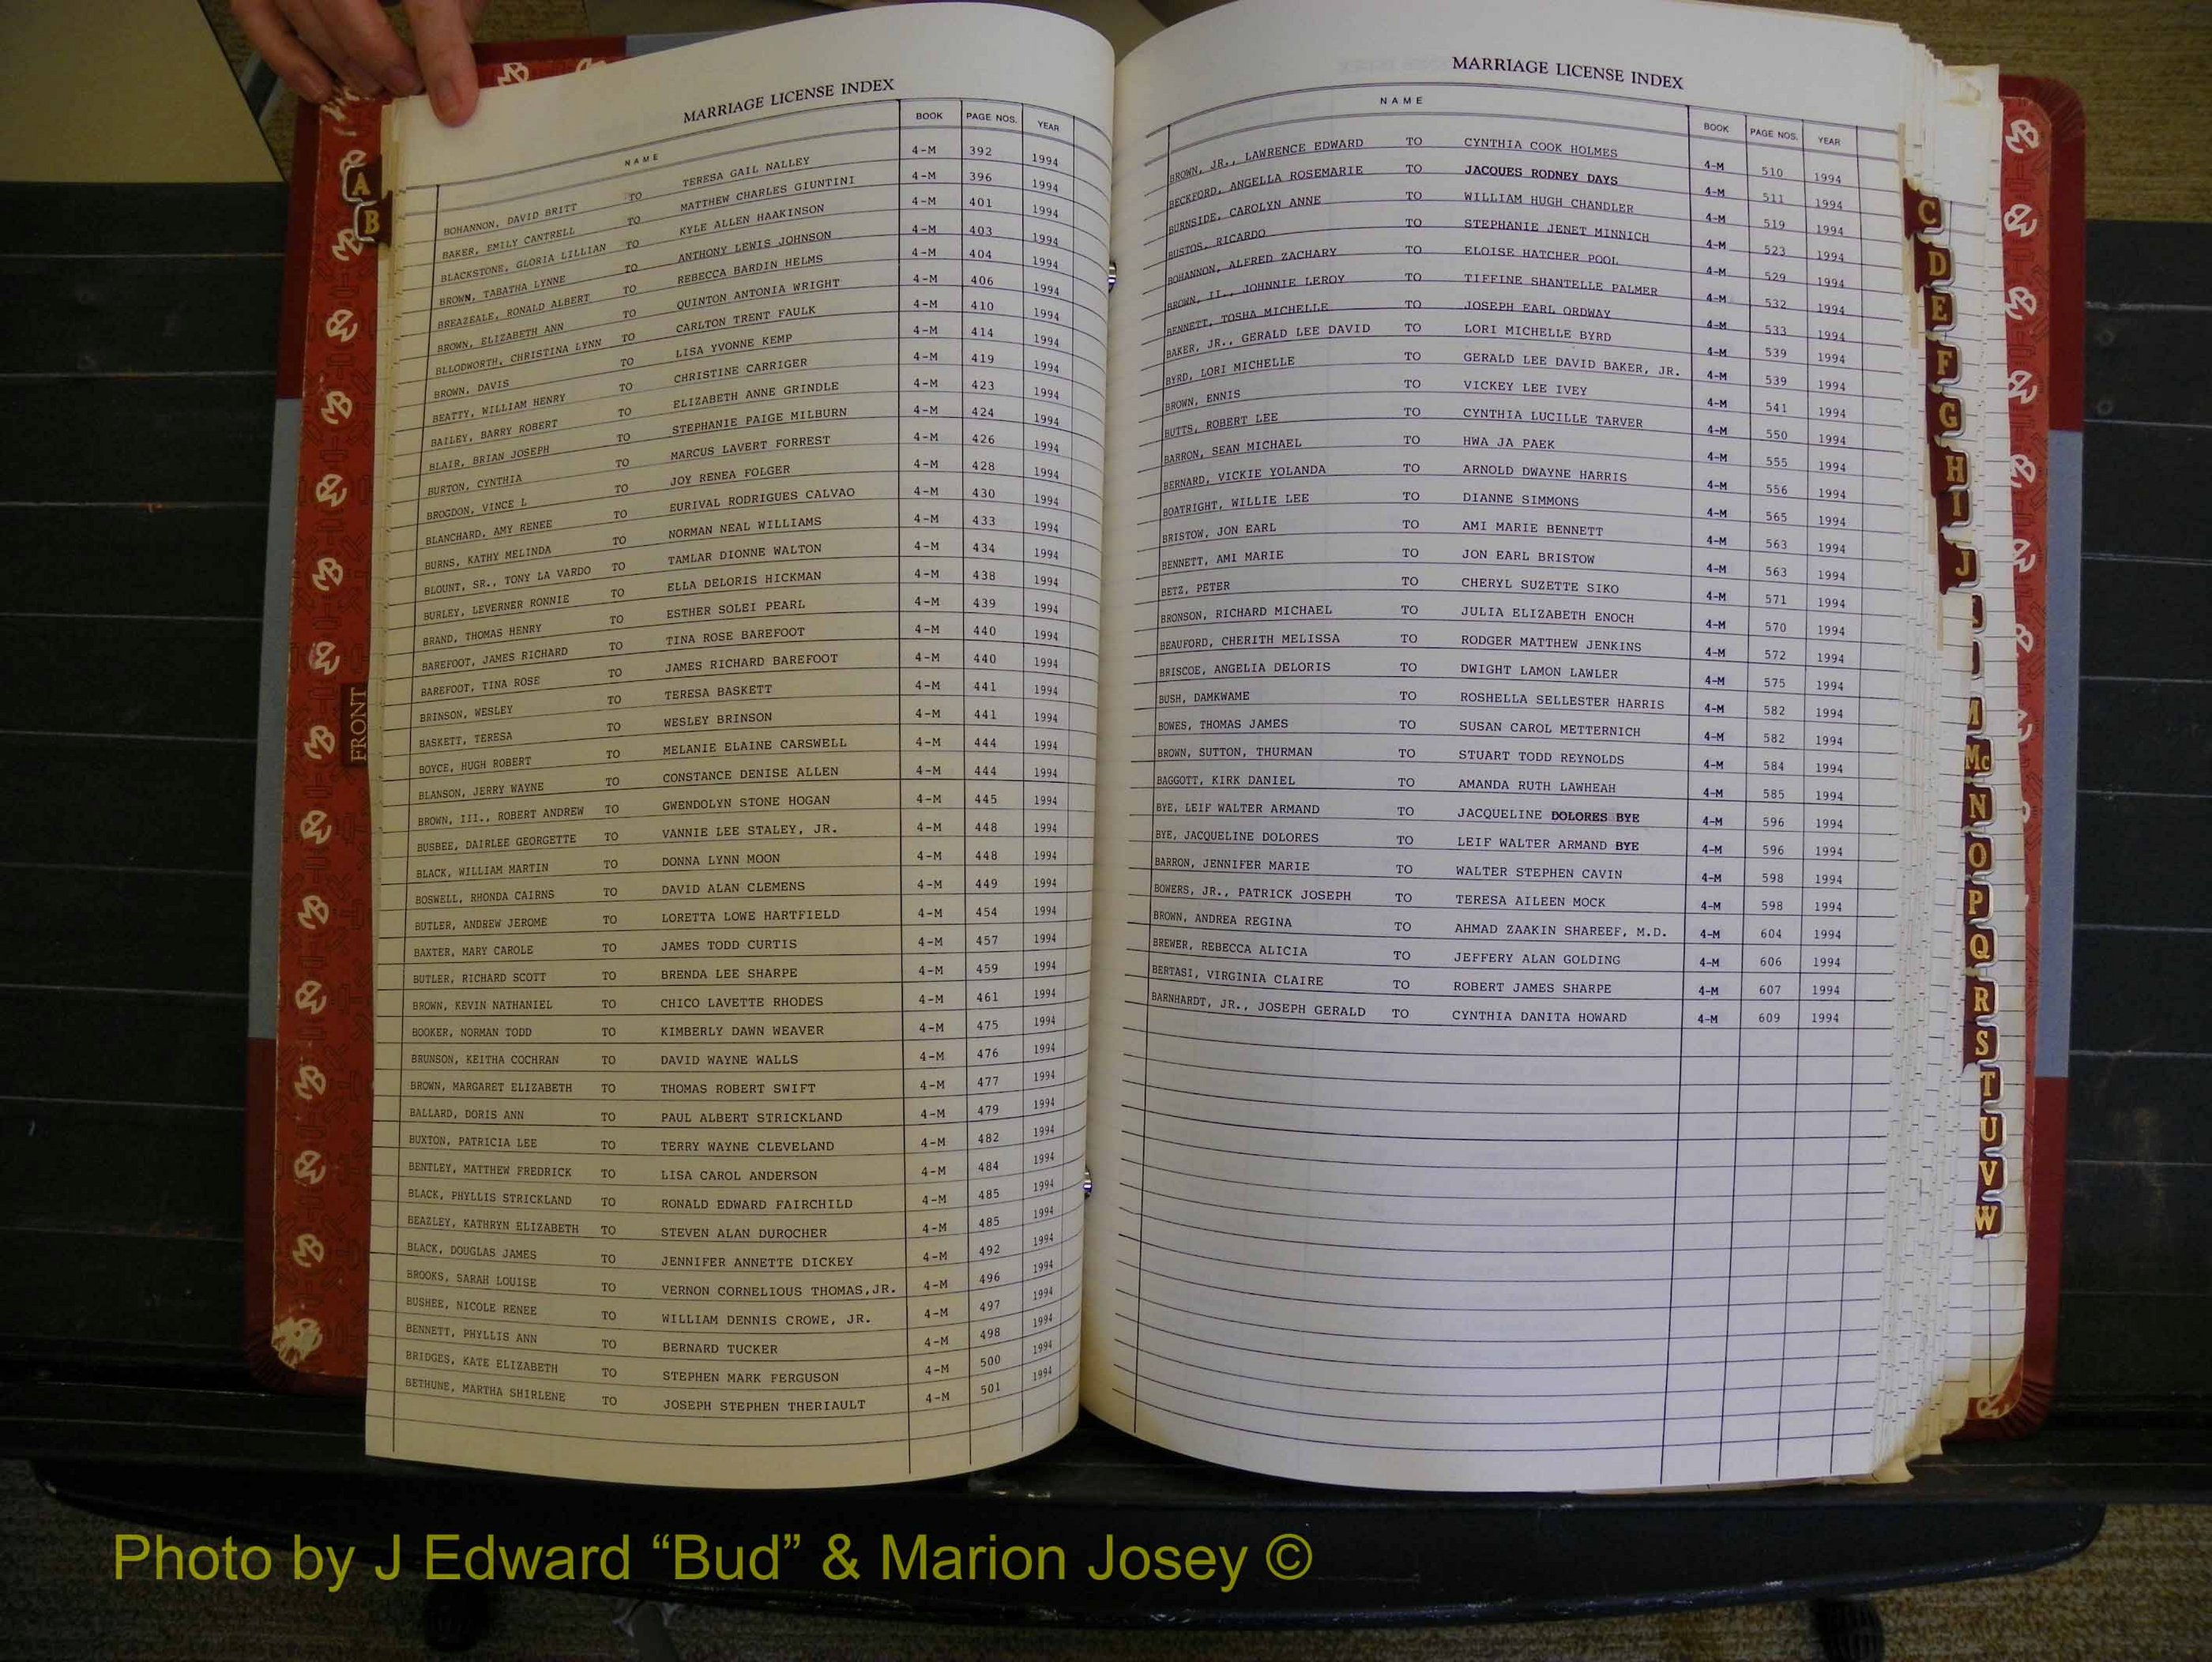 MARRIAGE LICENSE INDEX
NAME BOOK PAGE NOS. YEAR
BOHANNON, DAVID BRITT TO TERESA GAIL NALLEY 4-M 392 1994
BAKER, EMILY CANTRELL TO MATTHEW CHARLES GIUNTINI 4-M 396 1994
BLACKSTONE, GLORIA LILLIAN TO KYLE ALLEN HAAKINSON 4-M 401 1994
BROWN, TABATHA LYNNE TO ANTHONY LEWIS JOHNSON 4-M 403 1994
BREAZEALE, RONALD ALBERT TO REBECCA BARDIN HELMS 4-M 404 1994
BROWN, ELIZABETH ANN TO QUINTON ANTONIA WRIGHT 4-M 406 1994
BLLODWORTH, CHRISTINA LYNN TO CARLTON TRENT FAULK 4-M 410 1994
BROWN, DAVIS TO LISA YVONNE KEMP 4-M 414 1994
BEATTY, WILLIAM HENRY TO CHRISTINE CARRIGER 4-M 419 1994
BAILEY, BARRY ROBERT TO ELIZABETH ANNE GRINDLE 4-M 423 1994
BLAIR, BRIAN JOSEPH TO STEPHANIE PAIGE MILBURN 4-M 424 1994
BURTON, CYNTHIA TO MARCUS LAVERT FORREST 4-M 426 1994
BROGDON, VINCE L TO JOY RENEA FOLGER 4-M 428 1994
BLANCHARD, AMY RENEE TO EURIVAL RODRIGUES CALVAO 4-M 430 1994
BURNS, KATHY MELINDA TO NORMAN NEAL WILLIAMS 4-M 433 1994
BLOUNT, SR., TONY LA VARDO TO TAMLAR DIONNE WALTON 4-M 434 1994
BURLEY, LEVERNER RONNIE TO ELLA DELORIS HICKMAN 4-M 438 1994
BRAND, THOMAS HENRY TO ESTHER SOLEI PEARL 4-M 439 1994
BAREFOOT, JAMES RICHARD TO TINA ROSE BAREFOOT 4-M 440 1994
BAREFOOT, TINA ROSE TO JAMES RICHARD BAREFOOT 4-M 440 1994
BRINSON, WESLEY TO TERESA BASKETT 4-M 441 1994
BASKETT, TERESA TO WESLEY BRINSON 4-M 441 1994
BOYCE, HUGH ROBERT TO MELANIE ELAINE CARSWELL 4-M 444 1994
BLANSON, JERRY WAYNE TO CONSTANCE DENISE ALLEN 4-M 444 1994
BROWN, III., ROBERT ANDREW TO GWENDOLYN STONE HOGAN 4-M 445 1994
BUSBEE, DAIRLEE GEORGETTE TO VANNIE LEE STALEY, JR. 4-M 448 1994
BLACK, WILLIAM MARTIN TO DONNA LYNN MOON 4-M 448 1994
BOSWELL, RHONDA CAIRNS TO DAVID ALAN CLEMENS 4-M 449 1994
BUTLER, ANDREW JEROME TO LORETTA LOWE HARTFIELD 4-M 454 1994
BAXTER, MARY CAROLE TO JAMES TODD CURTIS 4-M 457 1994
BUTLER, RICHARD SCOTT TO BRENDA LEE SHARPE 4-M 459 1994
BROWN, KEVIN NATHANIEL TO CHICO LAVETTE RHODES 4-M 461 1994
BOOKER, NORMAN TODD TO KIMBERLY DAWN WEAVER 4-M 475 1994
BRUNSON, KEITHA COCHRAN TO DAVID WAYNE WALLS 4-M 476 1994
BROWN, MARGARET ELIZABETH TO THOMAS ROBERT SWIFT 4-M 477 1994
BALLARD, DORIS ANN TO PAUL ALBERT STRICKLAND 4-M 479 1994
BUXTON, PATRICIA LEE TO TERRY WAYNE CLEVELAND 4-M 482 1994
BENTLEY, MATTHEW FREDRICK TO LISA CAROL ANDERSON 4-M 484 1994
BLACK, PHYLLIS STRICKLAND TO RONALD EDWARD FAIRCHILD 4-M 485 1994
BEAZLEY, KATHRYN ELIZABETH TO STEVEN ALAN DUROCHER 4-M 485 1994
BLACK, DOUGLAS JAMES TO JENNIFER ANNETTE DICKEY 4-M 492 1994
BROOKS, SARAH LOUISE TO VERNON CORNELIOUS THOMAS,JR. 4-M 496 1994
BUSHEE, NICOLE RENEE TO WILLIAM DENNIS CROWE, JR. 4-M 497 1994
BENNETT, PHYLLIS ANN TO BERNARD TUCKER 4-M 498 1994
BRIDGES, KATE ELIZABETH TO STEPHEN MARK FERGUSON 4-M 500 1994
BETHUNE, MARTHA SHIRLENE TO JOSEPH STEPHEN THERIAULT 4-M 501 1994
A
B
FRONT
MARRIAGE LICENSE INDEX
NAME BOOK PAGE NOS. YEAR
BROWN, JR., LAWRENCE EDWARD TO CYNTHIA COOK HOLMES 4-M 510 1994
BECKFORD, ANGELLA ROSEMARIE TO JACQUES RODNEY DAYS 4-M 511 1994
BURNSIDE, CAROLYN ANNE TO WILLIAM HUGH CHANDLER 4-M 519 1994
BUSTOS, RICARDO TO STEPHANIE JENET MINNICH 4-M 523 1994
BOHANNON, ALFRED ZACHARY TO ELOISE HATCHER POOL 4-M 529 1994
BROWN, II., JOHNNIE LEROY TO TIFFINE SHANTELLE PALMER 4-M 532 1994
BENNETT, TOSHA MICHELLE TO JOSEPH EARL ORDWAY 4-M 533 1994
BAKER, JR., GERALD LEE DAVID TO LORI MICHELLE BYRD 4-M 539 1994
BYRD, LORI MICHELLE TO GERALD LEE DAVID BAKER, JR. 4-M 539 1994
BROWN, ENNIS TO VICKEY LEE IVEY 4-M 541 1994
BUTTS, ROBERT LEE TO CYNTHIA LUCILLE TARVER 4-M 550 1994
BARRON, SEAN MICHAEL TO HWA JA PAEK 4-M 555 1994
BERNARD, VICKIE YOLANDA TO ARNOLD DWAYNE HARRIS 4-M 556 1994
BOATRIGHT, WILLIE LEE TO DIANNE SIMMONS 4-M 565 1994
BRISTOW, JON EARL TO AMI MARIE BENNETT 4-M 563 1994
BENNETT, AMI MARIE TO JON EARL BRISTOW 4-M 563 1994
BETZ, PETER TO CHERYL SUZETTE SIKO 4-M 571 1994
BRONSON, RICHARD MICHAEL TO JULIA ELIZABETH ENOCH 4-M 570 1994
BEAUFORD, CHERITH MELISSA TO RODGER MATTHEW JENKINS 4-M 572 1994
BRISCOE, ANGELIA DELORIS TO DWIGHT LAMON LAWLER 4-M 575 1994
BUSH, DAMKWAME TO ROSHELLA SELLESTER HARRIS 4-M 582 1994
BOWES, THOMAS JAMES TO SUSAN CAROL METTERNICH 4-M 582 1994
BROWN, SUTTON, THURMAN TO STUART TODD REYNOLDS 4-M 584 1994
BAGGOTT, KIRK DANIEL TO AMANDA RUTH LAWHEAH 4-M 585 1994
BYE, LEIF WALTER ARMAND TO JACQUELINE DOLORES BYE 4-M 596 1994
BYE, JACQUELINE DOLORES TO LEIF WALTER ARMAND BYE 4-M 596 1994
BARRON, JENNIFER MARIE TO WALTER STEPHEN CAVIN 4-M 598 1994
BOWERS, JR., PATRICK JOSEPH TO TERESA AILEEN MOCK 4-M 598 1994
BROWN, ANDREA REGINA TO AHMAD ZAAKIN SHAREEF, M.D. 4-M 604 1994
BREWER, REBECCA ALICIA TO JEFFERY ALAN GOLDING 4-M 606 1994
BERTASI, VIRGINIA CLAIRE TO ROBERT JAMES SHARPE 4-M 607 1994
BARNHARDT, JR., JOSEPH GERALD TO CYNTHIA DANITA HOWARD 4-M 609 1994
C
D
E
F
G
H
I
J
M
Mc
N
O
P
Q
R
S
T
U
V
W
Photo by J Edward “Bud” & Marion Josey ©